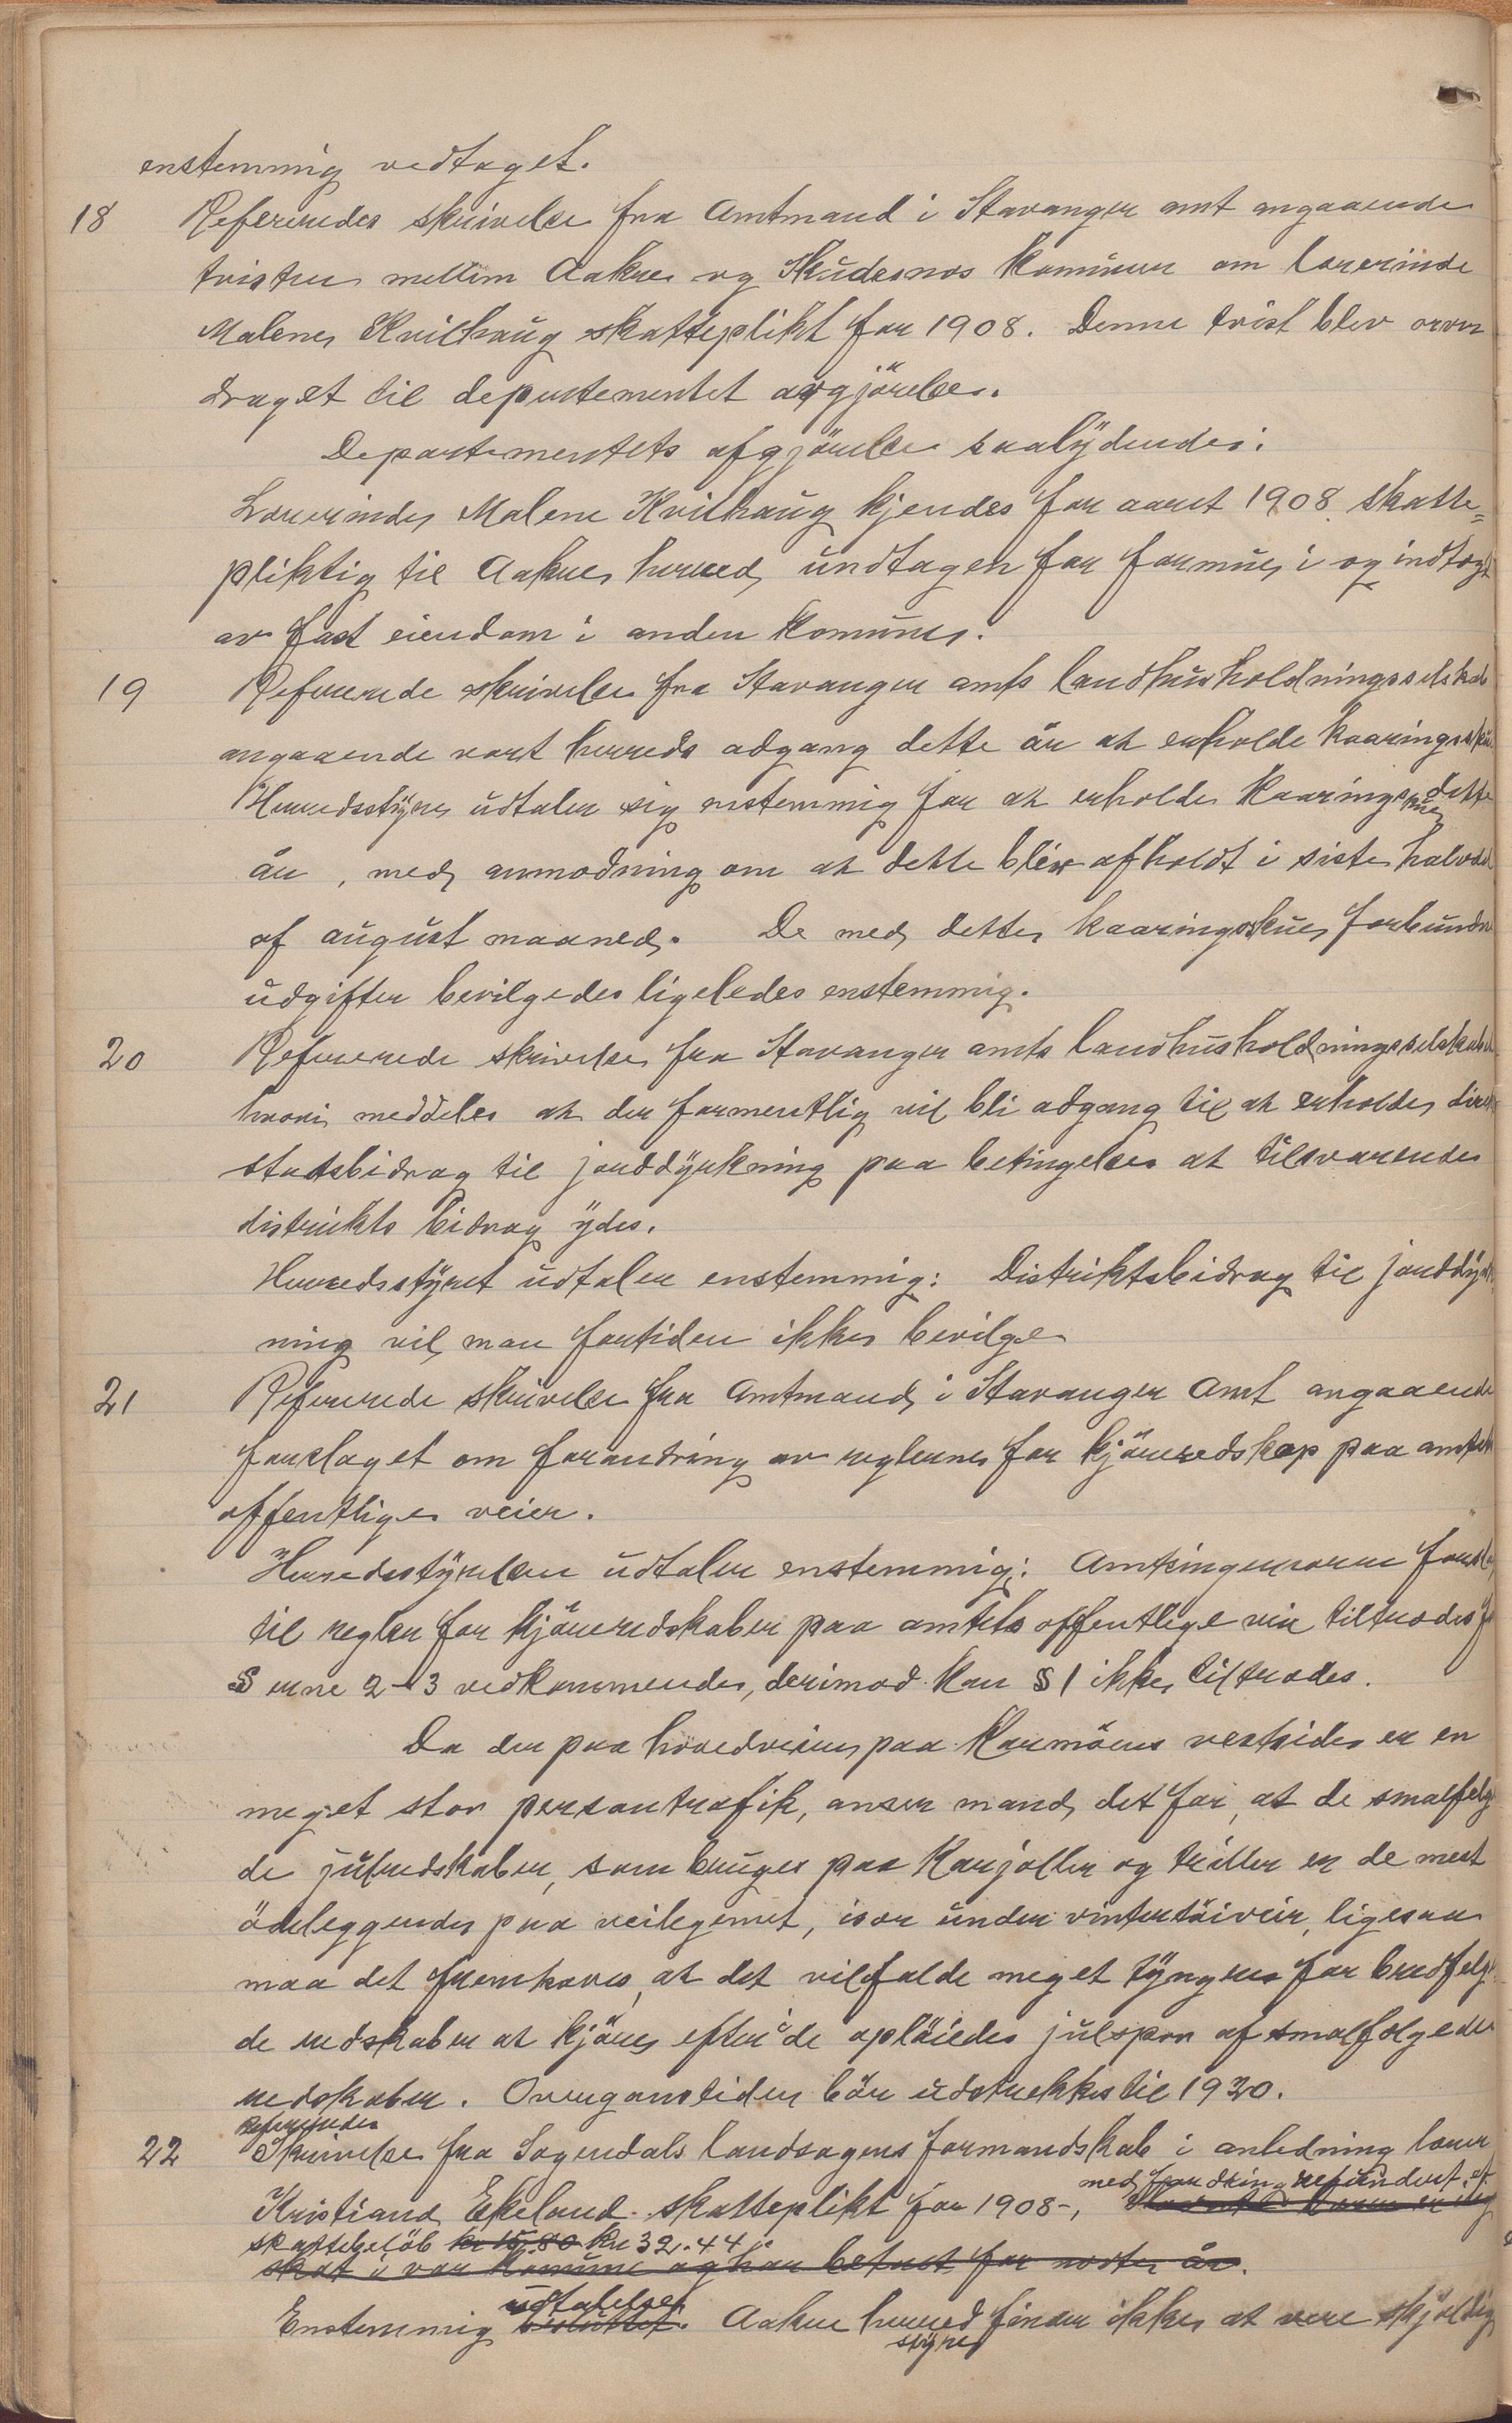 enstemmig vedtaget.
18 Refereredes skrivelse fra Amtmand i Stavanger amt angaaende
tristen mellem Aakre og Skudesnæs Kommuner om lærerinde
Malene Kvilhaug skatteplikt for 1908. Denne tvist blev over
draget til departementet avgjörelse.
Departementets afgjörelse saalydende:
Lærerinde Malene Kvilhaug kjendes for aaret 1908 skatte=
pliktig til Aakre herred, undtagen for formue i og indtægt
av fast eiendom i anden Komune.
19 Refererede skrivelse fra Stavanger amts landhusholdningsselskab
angaaende vort herreds adgang dette år at erholde Kaaringsskue
Herredsstyre udtaler sig enstemmig for at erholde Kaaringsskue dette
år, med anmodning om at dette blir afholdt i siste halvdel
af august maaned. De med dette kaaringsskue forbundne
udgifter bevilgedes ligeledes enstemmig.
20 Refererede skrivelse fra Stavanger amts landhusholdningsselskab
hvori meddeles at der formentlig vil bli adgang til at erholde direkte
statsbidrag til jorddyrkning paa betingelse at tilsvarende
distrikts bidrag ydes.
Herredsstyret udtaler enstemmig: Distriktsbidrag til jorddyrk
ning vil man fortiden ikke bevilge
21 Refererede skrivelse fra Amtmand i Stavanger Amt angaaende
forslaget om forandring av reglerne for kjöreredskap paa amtets
offentlige veier.
Herredsstyrelsen udtaler enstemmig: Amtsingeniörens forslag
til regler for kjöreredskaber paa amtets offentlige veie tiltrædes for
§ erne 2-3 vedkommende, derimod kan § 1 ikke tiltrædes.
Da der paa hovedveien paa Karmöens vestside er en
meget stor persontrafik, anser mand det for, at de smalfelge
de julredskaber, som bruges paa Karjoller og triller er de mest
ödeleggende paa veilegemet, især under vintertöiveir, ligesaa
maa det fremhæves, at det vil falde meget tyngre for bredfelge
de redskaber at kjöre efter i de oplöiede julspor af smalfelgede
redskaber. Overgangstiden bör udstrekkes til 1920.
Refereredes
22 Skrivelse fra Sogendals landsogns formandskab i anledning lærer
Kristiand Ekeland skatteplikt for 1908-, med fordring refundert et
skattebelöb kr 15,80 kr 32.44
skat i vor Komune og har betalt for nöste år.
Enstemmig besluttet. udtalelse Aakre herred styre finder ikke at være skyldig